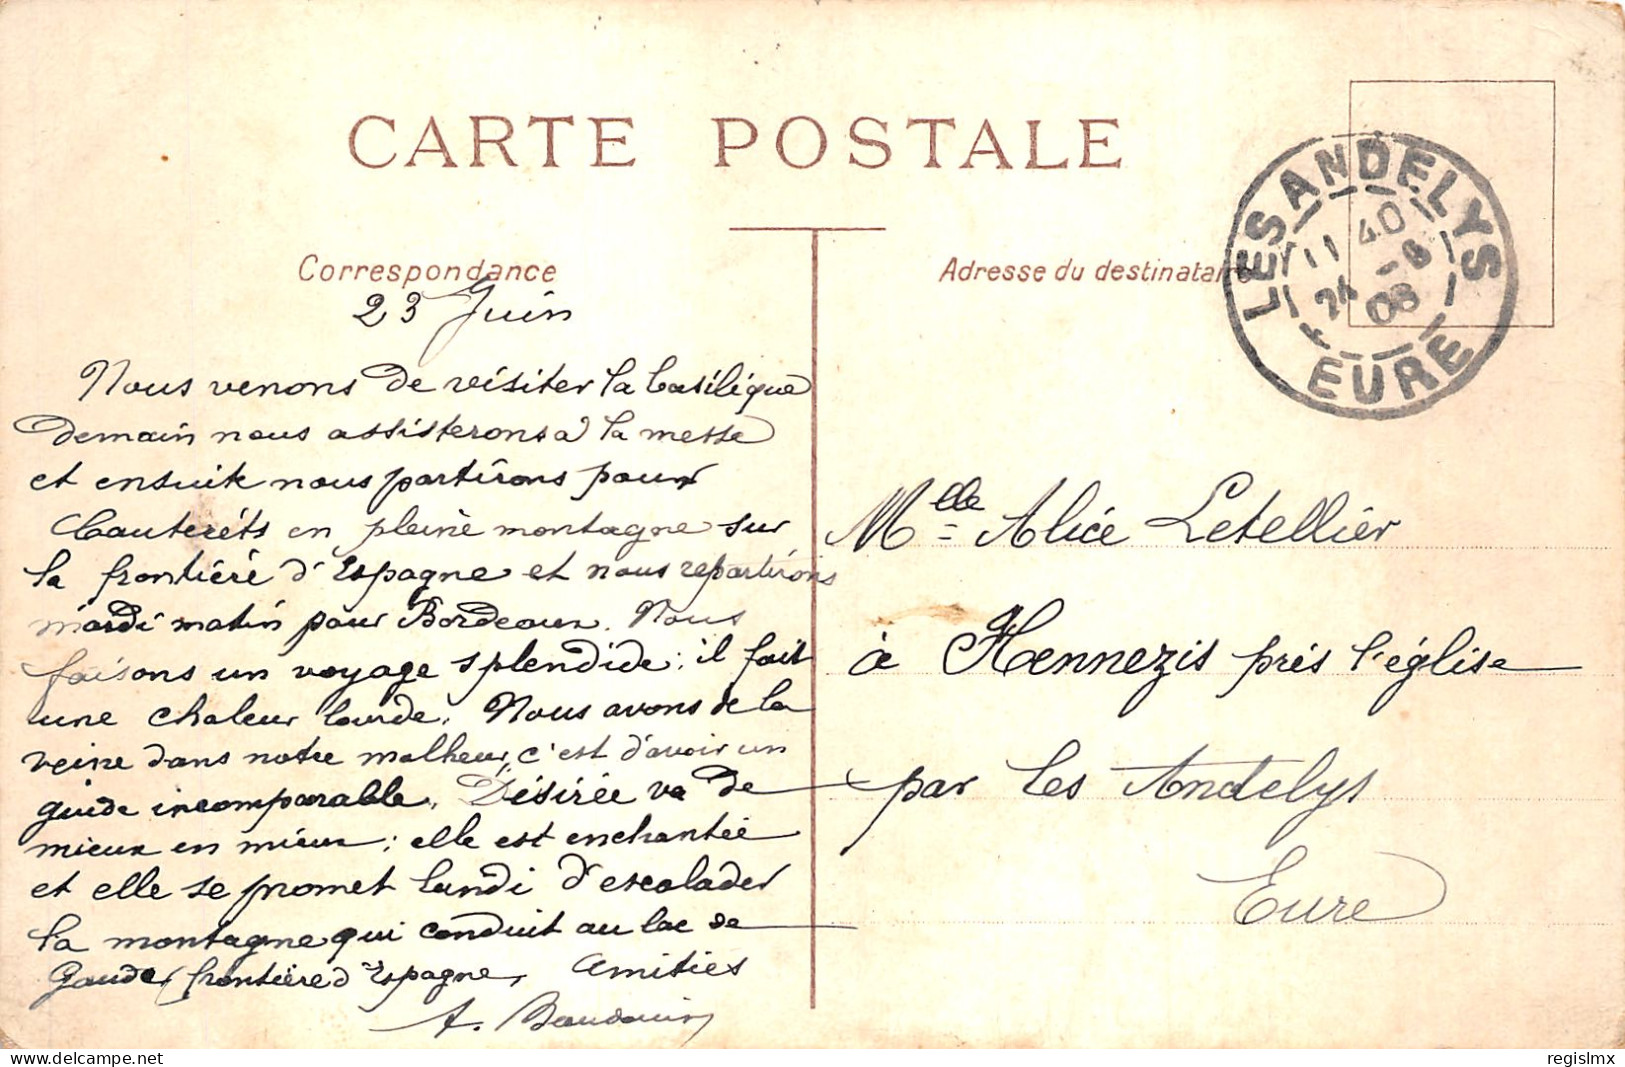 CARTE POSTALE
Correspondance
23 Juin
Nous venons de visiter la basilique
Demain nous assisterons à la messe
et ensuite nous partirons pour
Cauterets en pleine montagne sur
la frontière d'Espagne et nous repartirons
mardi matin pour Bordeaux. Nous
faisons un voyage splendide; il fait
une chaleur lourde. Nous avons de la
veine dans notre malheur, c'est d'avoir un
guide incomparable. Désirée va de
mieux en mieux; elle est enchantée
et elle se promet lundi d'escalader
la montagne qui conduit au lac de
Gaude, frontière d'Espagne. Amitiés
A. Baudouin
Adresse du destinataire
LES ANDELYS
11 40
24 -6
08
EURE
Mlle Alice Letellier
à Hennezis près l'église
par Les Andelys
Eure
delcampe.net
regislmx